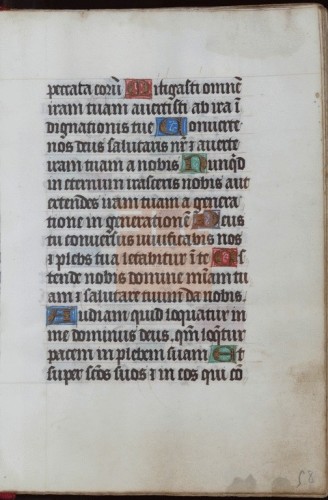 peccata eorū Mitigasti omnē
iram tuam avertisti ab ira ī
dignationis tue Converte
nos deus salutaris nr̄ ⁊ averte
iram tuam a nobis Nunqd
in eternum irasceris nobis aut
extendes iram tuam a genera
tione in generationē Deus
tu conversus vivificabis nos
⁊ plebs tua letabitur ī te Os
tende nobis domine mīam tu
am ⁊ salutare tuum da nobis.
Audiam quid loquatur in
me dominus deus. qm̄ loqtur
pacem in plebem suam Et
super scōs suos ⁊ in eos qui cō
58